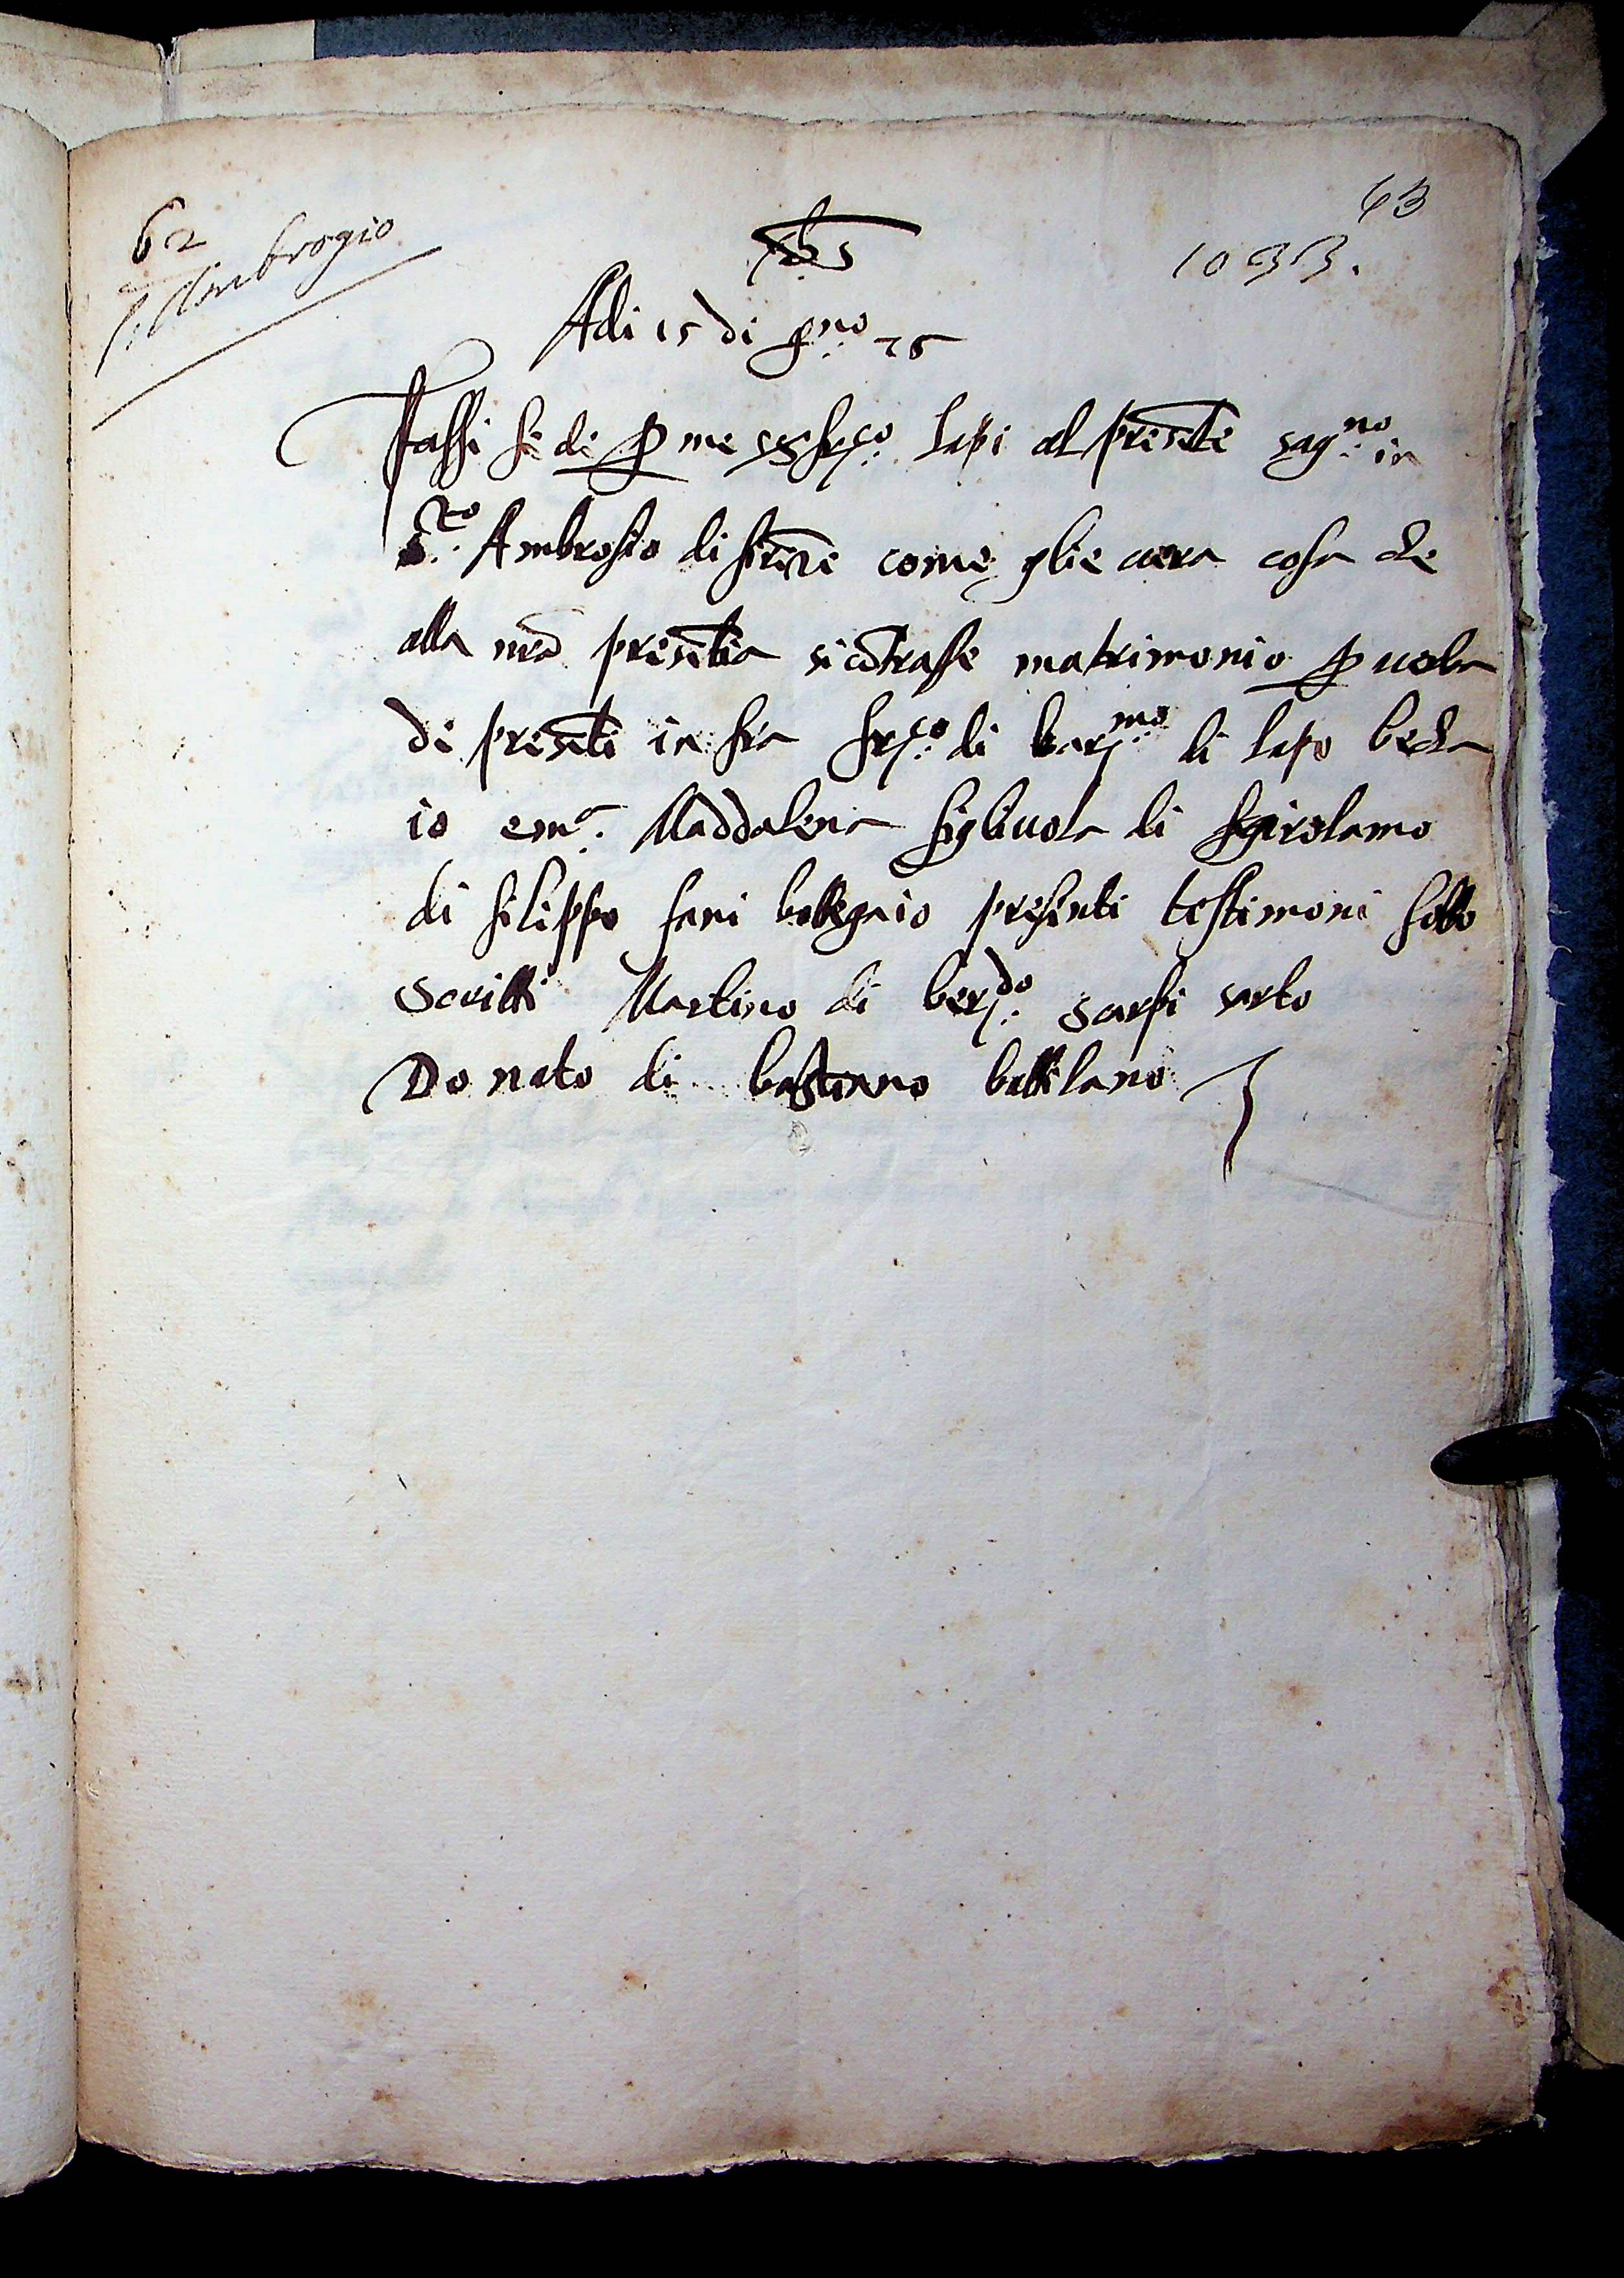 62
S. Ambrogio
63
1033.
yhs
Adi 15 di g.no 75
Fassi fede p me ss fr.co Lapi al presēte sag.no in
S.to Ambrosio di firēze come glie vera cosa che
alla mia presētia si cōtrasse matrimonio p verba
di presēti in fra fr.co di bar.mo di Lapo becha
io e m.a Maddalena figliuola di girolamo
di filippo fani bottegaio presenti testimoni sotto
scritti Martino di ber.do scarfi sarto
Donato di bastiano battilano